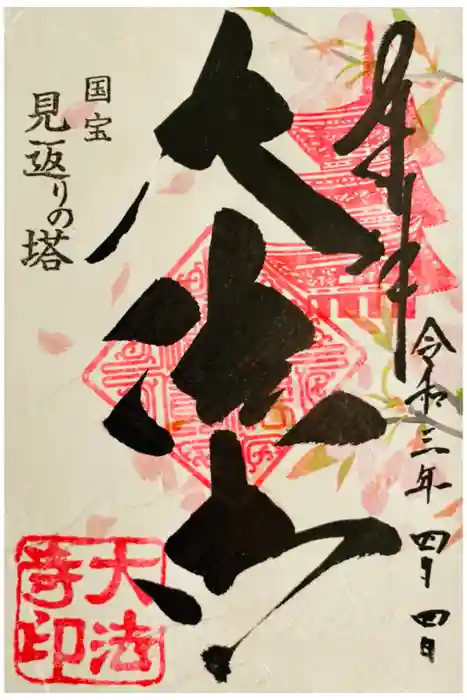 奉拝
令和三年 四月 四日
大法寺
国宝
見返りの塔
大法
寺印